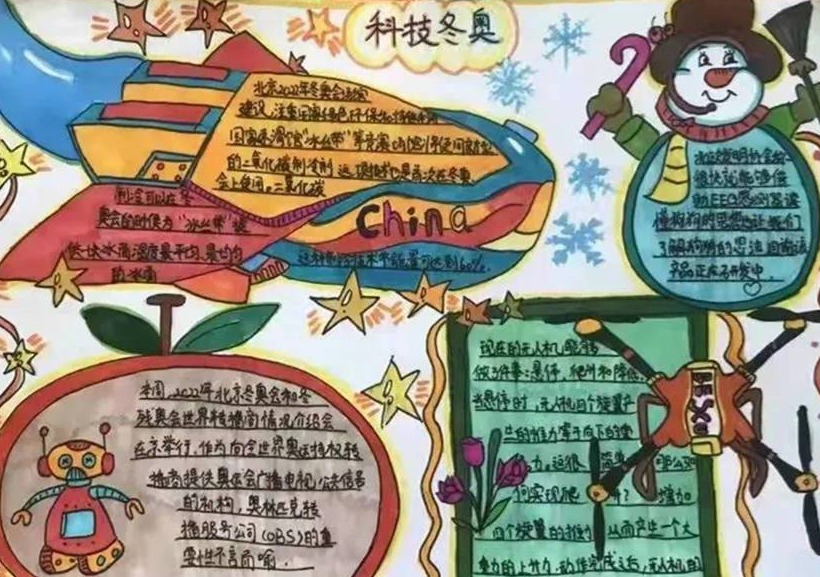 科技冬奥
北京2022年冬奥会场馆
建设,注重国家绿色环保和持续利用
国家速滑馆"冰丝带"等竞赛
的二氧化碳制冷剂 这项技术是首次在冬奥
会上使用。二氧化碳
制冷可以在冬
奥会的时候为"冰丝带"提
供快冰面温度最平均、最均匀
的冰面
China
这种制冷技术节能量可达到60%.
很快就能够借
助EEG感应器读
懂狗狗的思想也让我们
了解狗狗的想法目前该
产品正在开发中.
本周,2022年北京冬奥会和冬
残奥会世界转播商情况介绍会
在京举行.作为向全世界奥运持权转
播商提供奥运会广播电视公共信号
的机构,奥林匹克转
播服务公司(OBS)的重
要性不言而喻.
现在的无人机能够
做3件事:悬停,爬升和降低.
当悬停时,无人机四个旋翼产
生的推力等于向下的重
力.这很简单 那么如
何实现爬升? 增加
四个旋翼的推力 从而产生一个大
重力的上升力.动作完成之后,无人机的